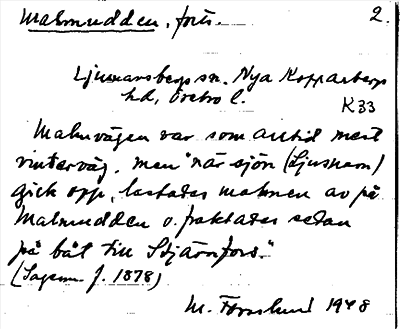 Malmudden, forts. 2.
Ljusnarsbergs sn. Nya Kopparbergs
hd, Örebro l.
K 33
Malmvägen var som alltid mest
vinterväg, men "när sjön (Ljusnaren)
gick opp, lastades malmen av på
Malmudden o. fraktades sedan
på båt till Stjärnfors."
(Sagesm. f. 1878)
M. Forslund 1948